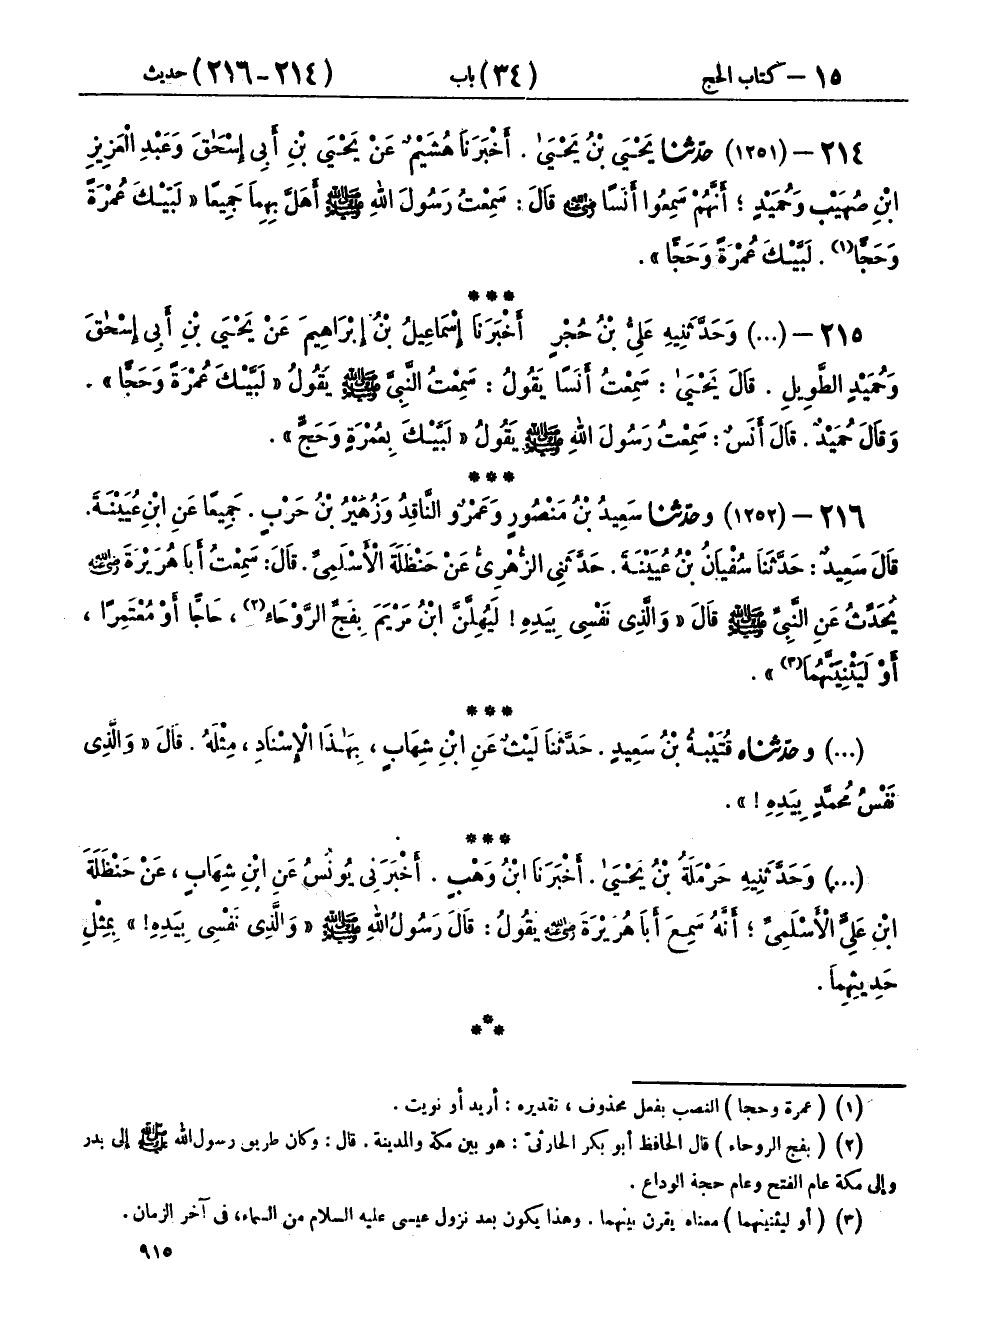 ١٥ – كتاب الحج (٣٤) باب (٢١٤-٢١٦) حديث
٢١٤ – (١٢٥١) حدّثنا يَحْيَىٰ بْنُ يَحْيَىٰ . أَخْبَرَنَا هُشَيْمٌ عَنْ يَحْيَىٰ بْنِ أَبِي إِسْحَٰقَ وَعَبْدِ الْعَزِيزِ
ابْنِ صُهَيْبٍ وَحُمَيْدٍ ؛ أَنَّهُمْ سَمِعُوا أَنَسًا رضي الله عنه قَالَ : سَمِعْتُ رَسُولَ اللهِ ﷺ أَهَلَّ بِهِمَا جَمِيعًا « لَبَّيْكَ عُمْرَةً
وَحَجًّا(١) . لَبَّيْكَ عُمْرَةً وَحَجًّا » .
***
٢١٥ – (...) وَحَدَّثَنِيهِ عَلِيُّ بْنُ حُجْرٍ أَخْبَرَنَا إِسْمَاعِيلُ بْنُ إِبْرَاهِيمَ عَنْ يَحْيَىٰ بْنِ أَبِي إِسْحَٰقَ
وَحُمَيْدٍ الطَّوِيلِ . قَالَ يَحْيَىٰ : سَمِعْتُ أَنَسًا يَقُولُ : سَمِعْتُ النَّبِيَّ ﷺ يَقُولُ « لَبَّيْكَ عُمْرَةً وَحَجًّا » .
وَقَالَ حُمَيْدٌ . قَالَ أَنَسٌ : سَمِعْتُ رَسُولَ اللهِ ﷺ يَقُولُ « لَبَّيْكَ بِعُمْرَةٍ وَحَجٍّ » .
***
٢١٦ – (١٢٥٢) وحدّثنا سَعِيدُ بْنُ مَنْصُورٍ وَعَمْرٌو النَّاقِدُ وَزُهَيْرُ بْنُ حَرْبٍ . جَمِيعًا عَنِ ابْنِ عُيَيْنَةَ.
قَالَ سَعِيدٌ : حَدَّثَنَا سُفْيَانُ بْنُ عُيَيْنَةَ . حَدَّثَنِي الزُّهْرِيُّ عَنْ حَنْظَلَةَ الْأَسْلَمِيِّ . قَالَ: سَمِعْتُ أَبَا هُرَيْرَةَ رضي الله عنه
يُحَدِّثُ عَنِ النَّبِيِّ ﷺ قَالَ « وَالَّذِي نَفْسِي بِيَدِهِ ! لَيُهِلَّنَّ ابْنُ مَرْيَمَ بِفَجِّ الرَّوْحَاءِ(٢) ، حَاجًّا أَوْ مُعْتَمِرًا ،
أَوْ لَيَثْنِيَنَّهُمَا(٣) » .
***
(...) وحدّثناه قُتَيْبَةُ بْنُ سَعِيدٍ . حَدَّثَنَا لَيْثٌ عَنِ ابْنِ شِهَابٍ ، بِهَٰذَا الْإِسْنَادِ ، مِثْلَهُ . قَالَ « وَالَّذِي
نَفْسُ مُحَمَّدٍ بِيَدِهِ ! » .
***
(...) وَحَدَّثَنِيهِ حَرْمَلَةُ بْنُ يَحْيَىٰ . أَخْبَرَنَا ابْنُ وَهْبٍ . أَخْبَرَنِي يُونُسُ عَنِ ابْنِ شِهَابٍ ، عَنْ حَنْظَلَةَ
ابْنِ عَلِيٍّ الْأَسْلَمِيِّ ؛ أَنَّهُ سَمِعَ أَبَا هُرَيْرَةَ رضي الله عنه يَقُولُ : قَالَ رَسُولُ اللهِ ﷺ « وَالَّذِي نَفْسِي بِيَدِهِ! » بِمِثْلِ
حَدِيثِهِمَا .
***
(١) ( عمرة وحجا ) النصب بفعل محذوف ، تقديره : أريد أو نويت .
(٢) ( بفج الروحاء ) قال الحافظ أبو بكر الحارثيّ : هو بين مكة والمدينة . قال : وكان طريق رسول الله ﷺ إلى بدر
وإلى مكة عام الفتح وعام حجة الوداع .
(٣) ( أو ليثنينهما ) معناه يقرن بينهما . وهذا يكون بعد نزول عيسى عليه السلام من السماء، في آخر الزمان .
٩١٥